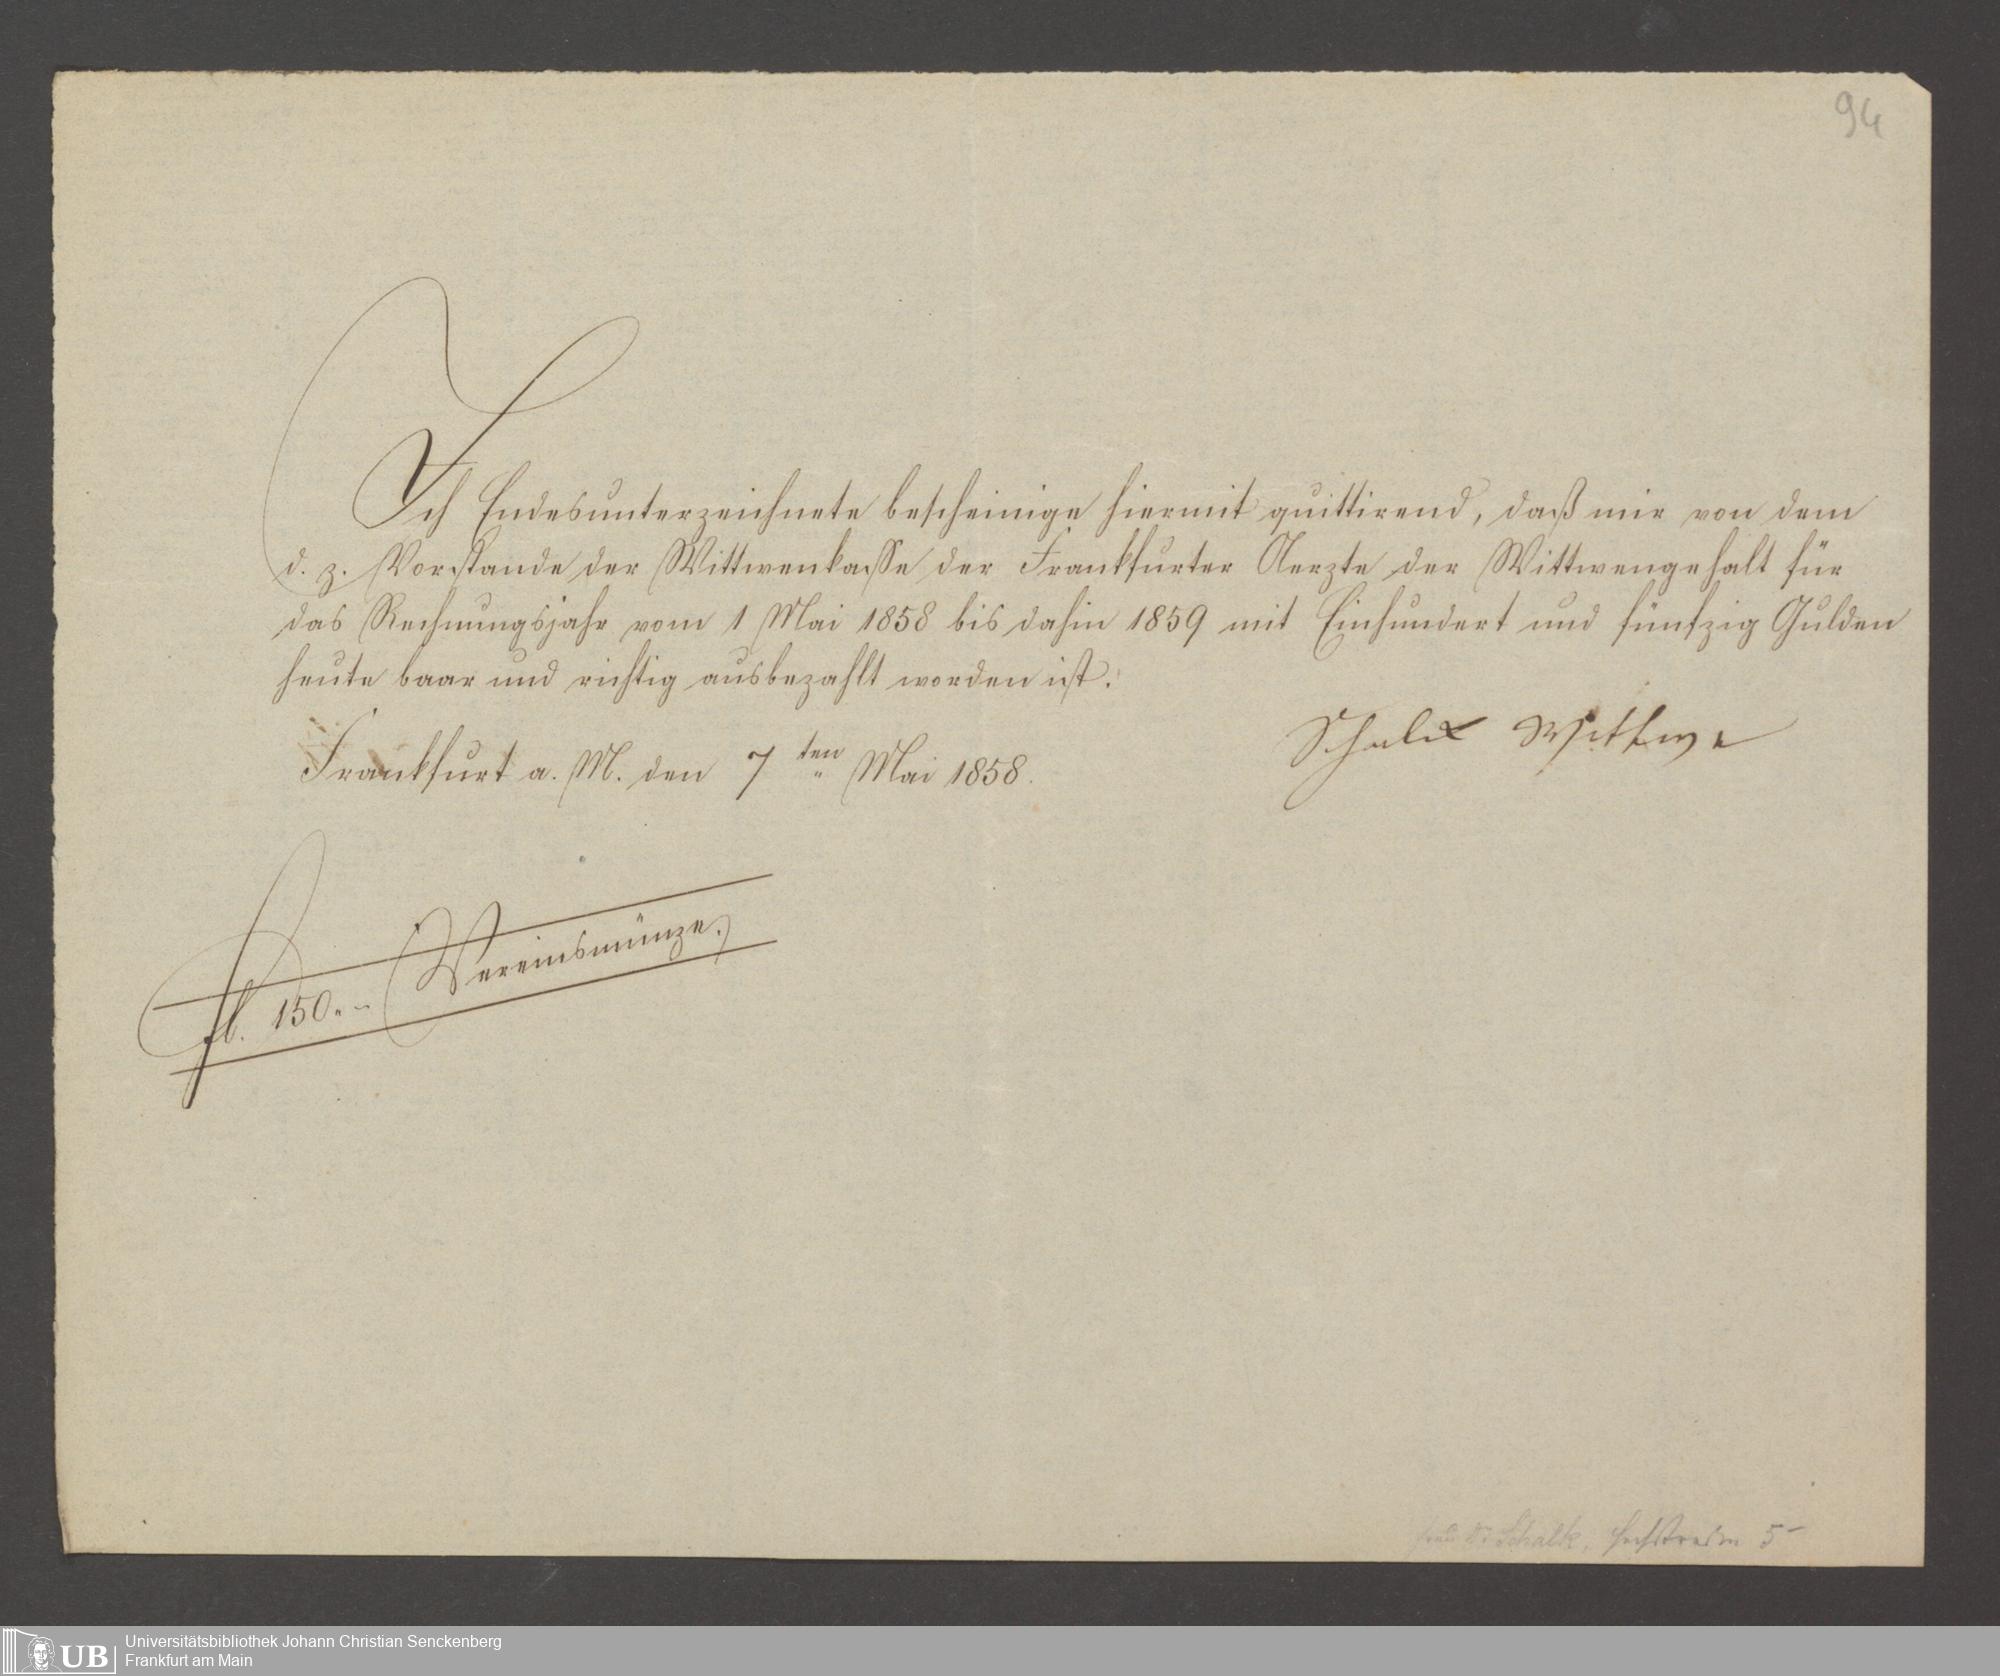 94
Ich Endesunterzeichnete bescheinige hiermit quittirend, daß mir von dem
d. z. Vorstande der Wittwenkasse der Frankfurter Aerzte der Wittwengehalt für
das Rechnungsjahr vom 1 Mai 1858 bis dahin 1859 mit Einhundert und fünfzig Gulden
heute baar und richtig ausbezahlt worden ist.
Schalk Wittwe
Frankfurt a. M. den 7ten Mai 1858.
fl. 150.- Vereinsmünze.
Frau Dr Schalk, 5
UB
Universitätsbibliothek Johann Christian Senckenberg
Frankfurt am Main